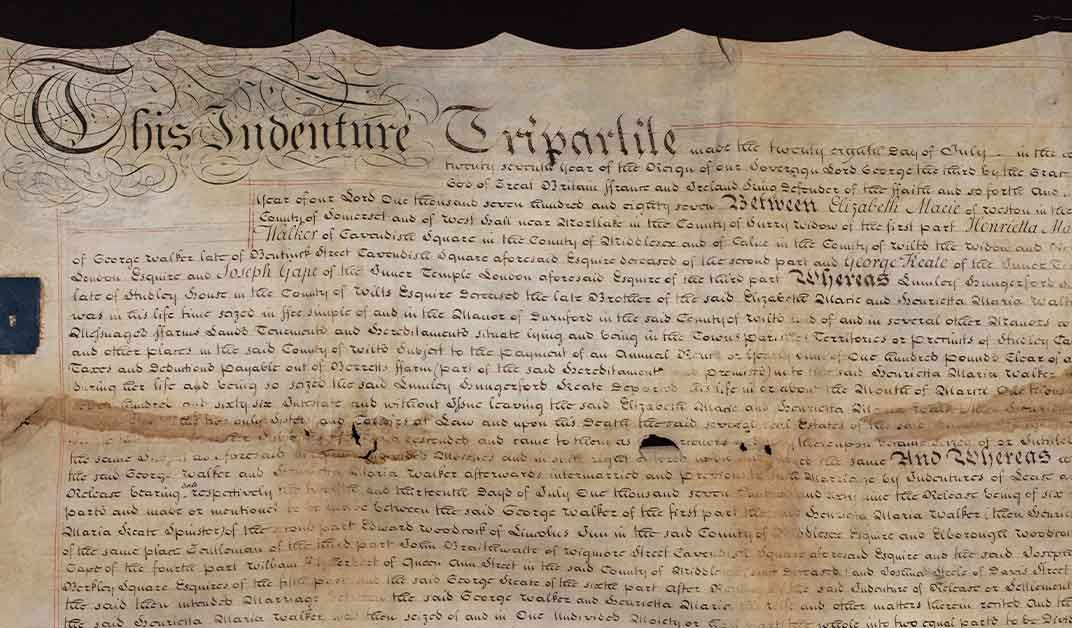 This Indenture Tripartite made the twenty eighth Day of July in the
twenty seventh Year of the Reign of our Sovereign Lord George the third by the Grac
God of Great Britain ffrance and Ireland King Defender of the ffaith and so forth And
Year of our Lord One thousand seven hundred and eighty seven Between Elizabeth Macie of Weston in the
County of Somerset and of West Hall near Mortlake in the County of Surry Widow of the first part Henrietta Ma
Walker of Cavendish Square in the County of Middlesex and of Calne in the County of Wilts the Widow and
of George Walker late of Bentinck Street Cavendish Square aforesaid Esquire deceased of the second part and George Keate of the Inner Te
London Esquire and Joseph Gape of the Inner Temple London aforesaid Esquire of the third part Whereas Lumley Hungerford
late of Studley House in the County of Wilts Esquire deceased the late Brother of the said Elizabeth Macie and Henrietta Maria Walk
was in his life time seized in ffee simple of and in the Manor of Durnford in the said County of Wilts and of and in several other Manors
Messuages ffarms Lands Tenements and Hereditaments situate lying and being in the Towns Parishes Territories or Precincts of Studley Ca
and other places in the said County of Wilts Subject to the Payment of an Annual Rent or Yearly sum of One hundred Pounds Clear of a
Taxes and Deductions Payable out of ffarm part of the said Hereditaments and Premisses unto the said Henrietta Maria Walker
during her life and being so seized the said Lumley Hungerford Keate Departed this life in or about the Month of March One thous
seven hundred and sixty six Intestate and without Issue leaving the said Elizabeth Macie and Henrietta Maria
his only Sisters and Coheirs at Law and upon his Death the said several Estates of the said
descended and came to them as thereupon became seized of or Intitled
the same Subject as aforesaid in undivided Moieties and in the same And Whereas
the said George Walker and Henrietta Maria Walker afterwards intermarried and Previous to such Marriage by Indentures of Lease a
Release bearing date respectively the twelfth and thirteenth Days of July One thousand seven hundred and the Release being of six
parts and made or mentioned to be made between the said George Walker of the first part the said Henrietta Maria Walker (then Henri
Maria Keate Spinster) of the second part Edward Woodcock of Lincolns Inn in the said County of Middlesex Esquire and Elborough Woodco
of the same place Gentleman of the third part John Braithwaite of Wigmore Street Cavendish Square aforesaid Esquire and the said Joseph
Gape of the fourth part William of Queen Ann Street in the said County of Middlesex since deceased and Joshua Steele of Davis Street
Berkley Square Esquires of the fifth part and the said George Keate of the sixth part After the said Indenture of Release or Settlement
the said then intended Marriage between the said George Walker and Henrietta Maria his wife and other matters therein recited And tha
the said Henrietta Maria Walker was then seized of and in One Undivided Moiety the whole into two equal parts to be Divid